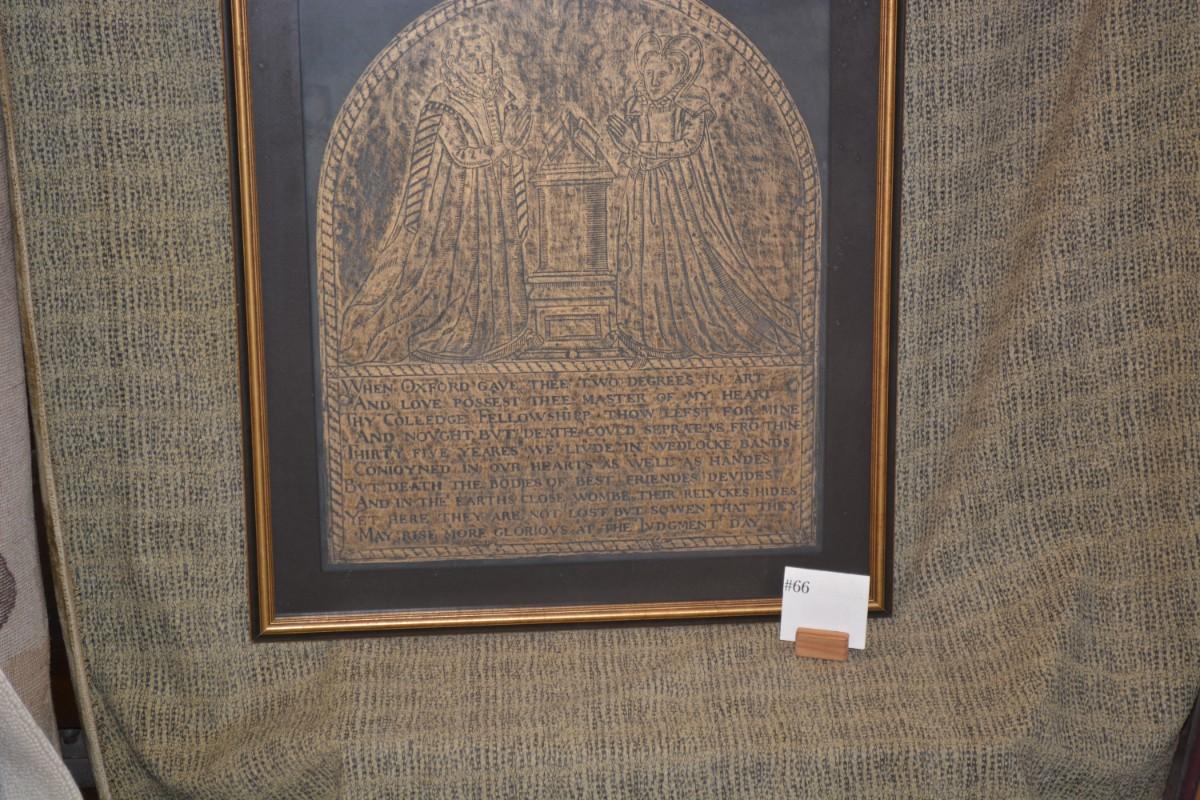 WHEN OXFORD GAVE THEE TWO DEGREES IN ART
AND LOVE POSSEST THEE MASTER OF MY HEART
THY COLLEDGE FELLOWSHIPP THOW LEFST FOR MINE
AND NOVGHT BVT DEATH COVLD SEPRATE ME FRÕ THINE
THIRTY FIVE YEARES WE LIVDE IN WEDLOCKE BANDS
CONIOYNED IN OVR HEARTS AS WELL AS HANDES
BVT DEATH THE BODIES OF BEST FRIENDES DEVIDES
AND IN THE EARTHS CLOSE WOMBE THEIR RELYCKES HIDES
YET HERE THEY ARE NOT LOST BVT SOWEN THAT THEY
MAY RISE MORE GLORIOVS AT THE IVDGMENT DAY
#66